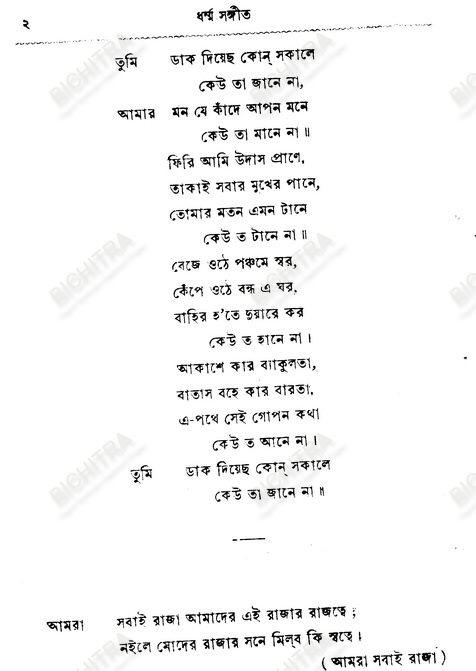 ২ ধর্ম্ম সঙ্গীত
তুমি ডাক দিয়েছ কোন্ সকালে
কেউ তা জানে না,
আমার মন যে কাঁদে আপন মনে
কেউ তা মানে না॥
ফিরি আমি উদাস প্রাণে,
তাকাই সবার মুখের পানে,
তোমার মতন এমন টানে
কেউ ত টানে না॥
বেজে ওঠে পঞ্চমে স্বর,
কেঁপে ওঠে বন্ধ এ ঘর,
বাহির হ'তে দুয়ারে কর
কেউ ত হানে না।
আকাশে কার ব্যাকুলতা,
বাতাস বহে কার বারতা,
এ-পথে সেই গোপন কথা
কেউ ত আনে না।
তুমি ডাক দিয়েছ কোন্ সকালে
কেউ তা জানে না॥
আমরা সবাই রাজা আমাদের এই রাজার রাজত্বে;
নইলে মোদের রাজার সনে মিল্‌ব কি স্বত্বে।
(আমরা সবাই রাজা)
BICHITRA
BICHITRA
BICHITRA
BICHITRA
BICHITRA
BICHITRA